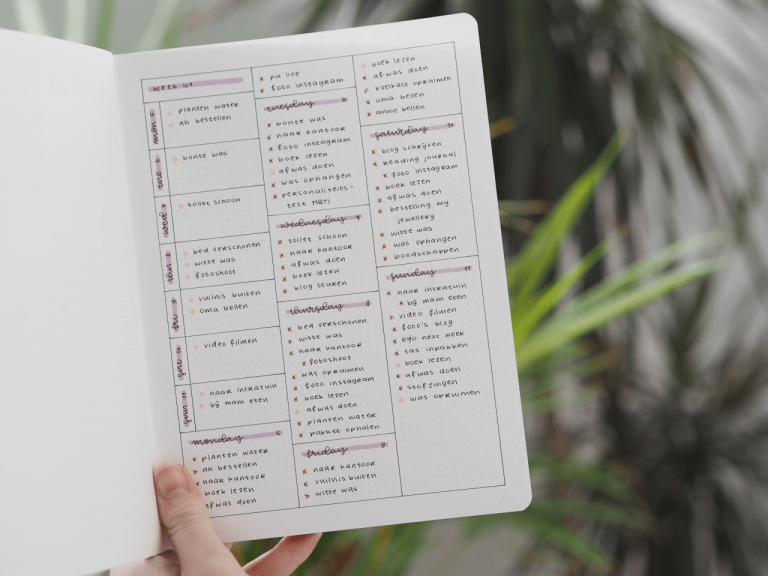 week 41
mon 5
planten water
ah bestellen
tue 6
bonte was
wed 7
toilet schoon
thu 8
bed verschonen
witte was
fotoshoot
fri 9
vuilnis buiten
oma bellen
sat 10
video filmen
sun 11
naar intratuin
bij mam eten
monday 5
planten water
ah bestellen
naar kantoor
boek lezen
afwas doen
pa live
foto instagram
tuesday 6
bonte was
naar kantoor
foto instagram
boek lezen
afwas doen
was ophangen
personaliteits-
test MBTI
wednesday 7
toilet schoon
naar kantoor
afwas doen
boek lezen
blog sturen
thursday 8
bed verschonen
witte was
naar kantoor
fotoshoot
was opruimen
foto instagram
boek lezen
afwas doen
planten water
pakket ophalen
friday 9
naar kantoor
vuilnis buiten
witte was
boek lezen
afwas doen
koelkast opruimen
oma bellen
annie bellen
saturday 10
blog schrijven
reading journal
foto instagram
boek lezen
afwas doen
bestelling my
jewellery
witte was
was ophangen
boodschappen
sunday 11
naar intratuin
bij mam eten
video filmen
foto's blog
bujo next week
tas inpakken
boek lezen
afwas doen
stofzuigen
was opruimen